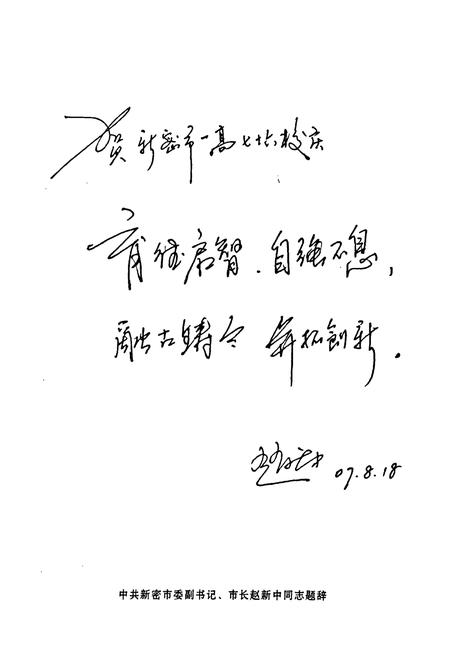 贺新密市一高七十六校庆
育德启智.自强不息,
融古铸今 开拓创新.
赵新中 07.8.18
中共新密市委副书记、市长赵新中同志题辞